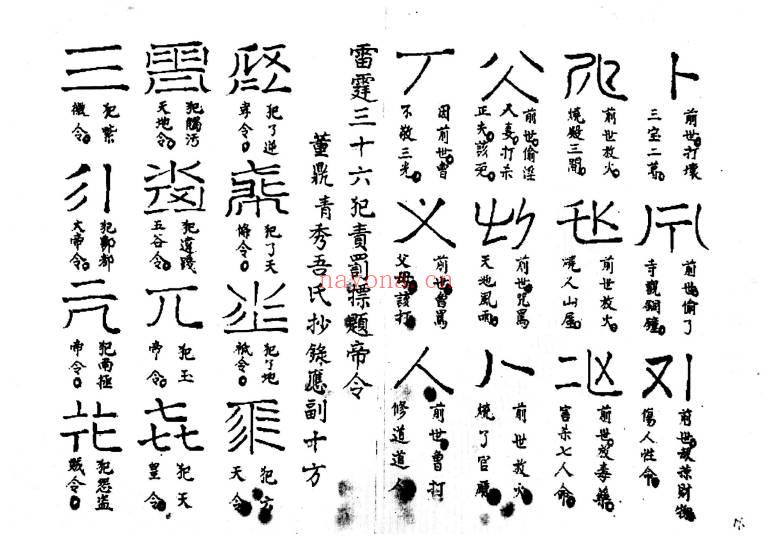 卜
前世打壞
三宝二尊
前世偷了
寺觀銅鐘
前世謀財物
傷人性命
前世放火
燒殿三間
前世放火
燒人山屋
前世放毒藥
害杀七人命
前世偷淫
人妻打杀
正夫該死
前世咒罵
天地風雨
八
前世放火
燒了官廳
因前世曾
不敬三光
义
前世曾罵
父母該打
人
前世曾打
修道道人
雷霆三十六犯責罰摽題帝令
董鼎青秀吾氏抄錄應副十方
犯了逆
令
犯了天
将令
犯了地
祇令
犯六
天令
犯觸污
天地令
犯遺踐
五谷令
兀
犯玉
帝令
犯天
皇令
三
犯紫
微令
犯酆都
大帝令
犯南極
帝令
犯惡盜
賊令
nayona.cn